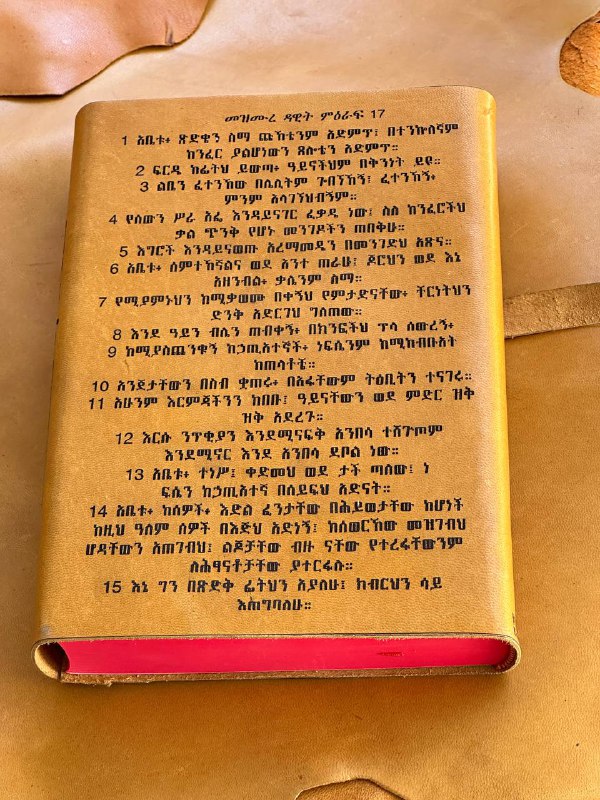 መዝሙረ ዳዊት ምዕራፍ 17
1 አቤቱ፥ ጽድቄን ስማ ጩኸቴንም አድምጥ፤ በተንኰለኛም
ከንፈር ያልሆነውን ጸሎቴን አድምጥ።
2 ፍርዴ ከፊትህ ይውጣ፥ ዓይኖችህም በቅንነት ይዩ።
3 ልቤን ፈተንኸው በሌሊትም ጐበኘኸኝ፤ ፈተንኸኝ፥
ምንም አላገኘህብኝም።
4 የሰውን ሥራ አፌ እንዳይናገር ፈቃዴ ነው፤ ስለ ከንፈሮችህ
ቃል ጭንቅ የሆኑ መንገዶችን ጠበቅሁ።
5 እግሮቼ እንዳይናወጡ አረማመዴን በመንገድህ አጽና።
6 አቤቱ፥ ሰምተኸኛልና ወደ አንተ ጠራሁ፤ ጆሮህን ወደ እኔ
አዘንብል፥ ቃሌንም ስማ።
7 የሚያምኑህን ከሚቃወሙ በቀኝህ የምታድናቸው፥ ቸርነትህን
ድንቅ አድርገህ ግለጠው።
8 እንደ ዓይን ብሌን ጠብቀኝ፥ በክንፎችህ ጥላ ሰውረኝ፥
9 ከሚያስጨንቁኝ ከኃጢአተኛች፥ ነፍሴንም ከሚከብቡአት
ከጠላቶቼ።
10 አንጀታቸውን በስብ ቋጠሩ፥ በአፋቸውም ትዕቢትን ተናገሩ።
11 አሁንም እርምጃችንን ከበቡ፤ ዓይናቸውን ወደ ምድር ዝቅ
ዝቅ አደረጉ።
12 እርሱ ንጥቂያን እንደሚናፍቅ አንበሳ ተሸጕጦም
እንደሚኖር እንደ አንበሳ ደቦል ነው።
13 አቤቱ፥ ተነሥ፤ ቀድመህ ወደ ታች ጣለው፤ ነ
ፍሴን ከኃጢአተኛ በሰይፍህ አድናት።
14 አቤቱ፥ ከሰዎች፥ እድል ፈንታቸው በሕይወታቸው ከሆነች
ከዚህ ዓለም ሰዎች በእጅህ አድነኝ፤ ከሰወርኸው መዝገብህ
ሆዳቸውን አጠገብህ፤ ልጆቻቸው ብዙ ናቸው የተረፋቸውንም
ለሕፃናቶቻቸው ያተርፋሉ።
15 እኔ ግን በጽድቅ ፊትህን አያለሁ፤ ከብርህን ሳይ
እጠግባለሁ።